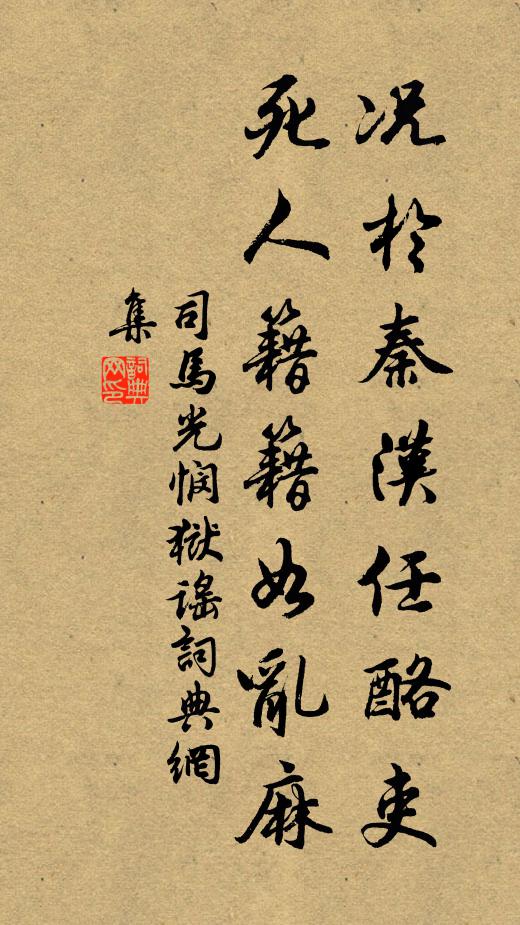 况於秦漢任酷吏
死人籍籍如亂麻
司馬光憫獄謠詞典網
集
詞典网印